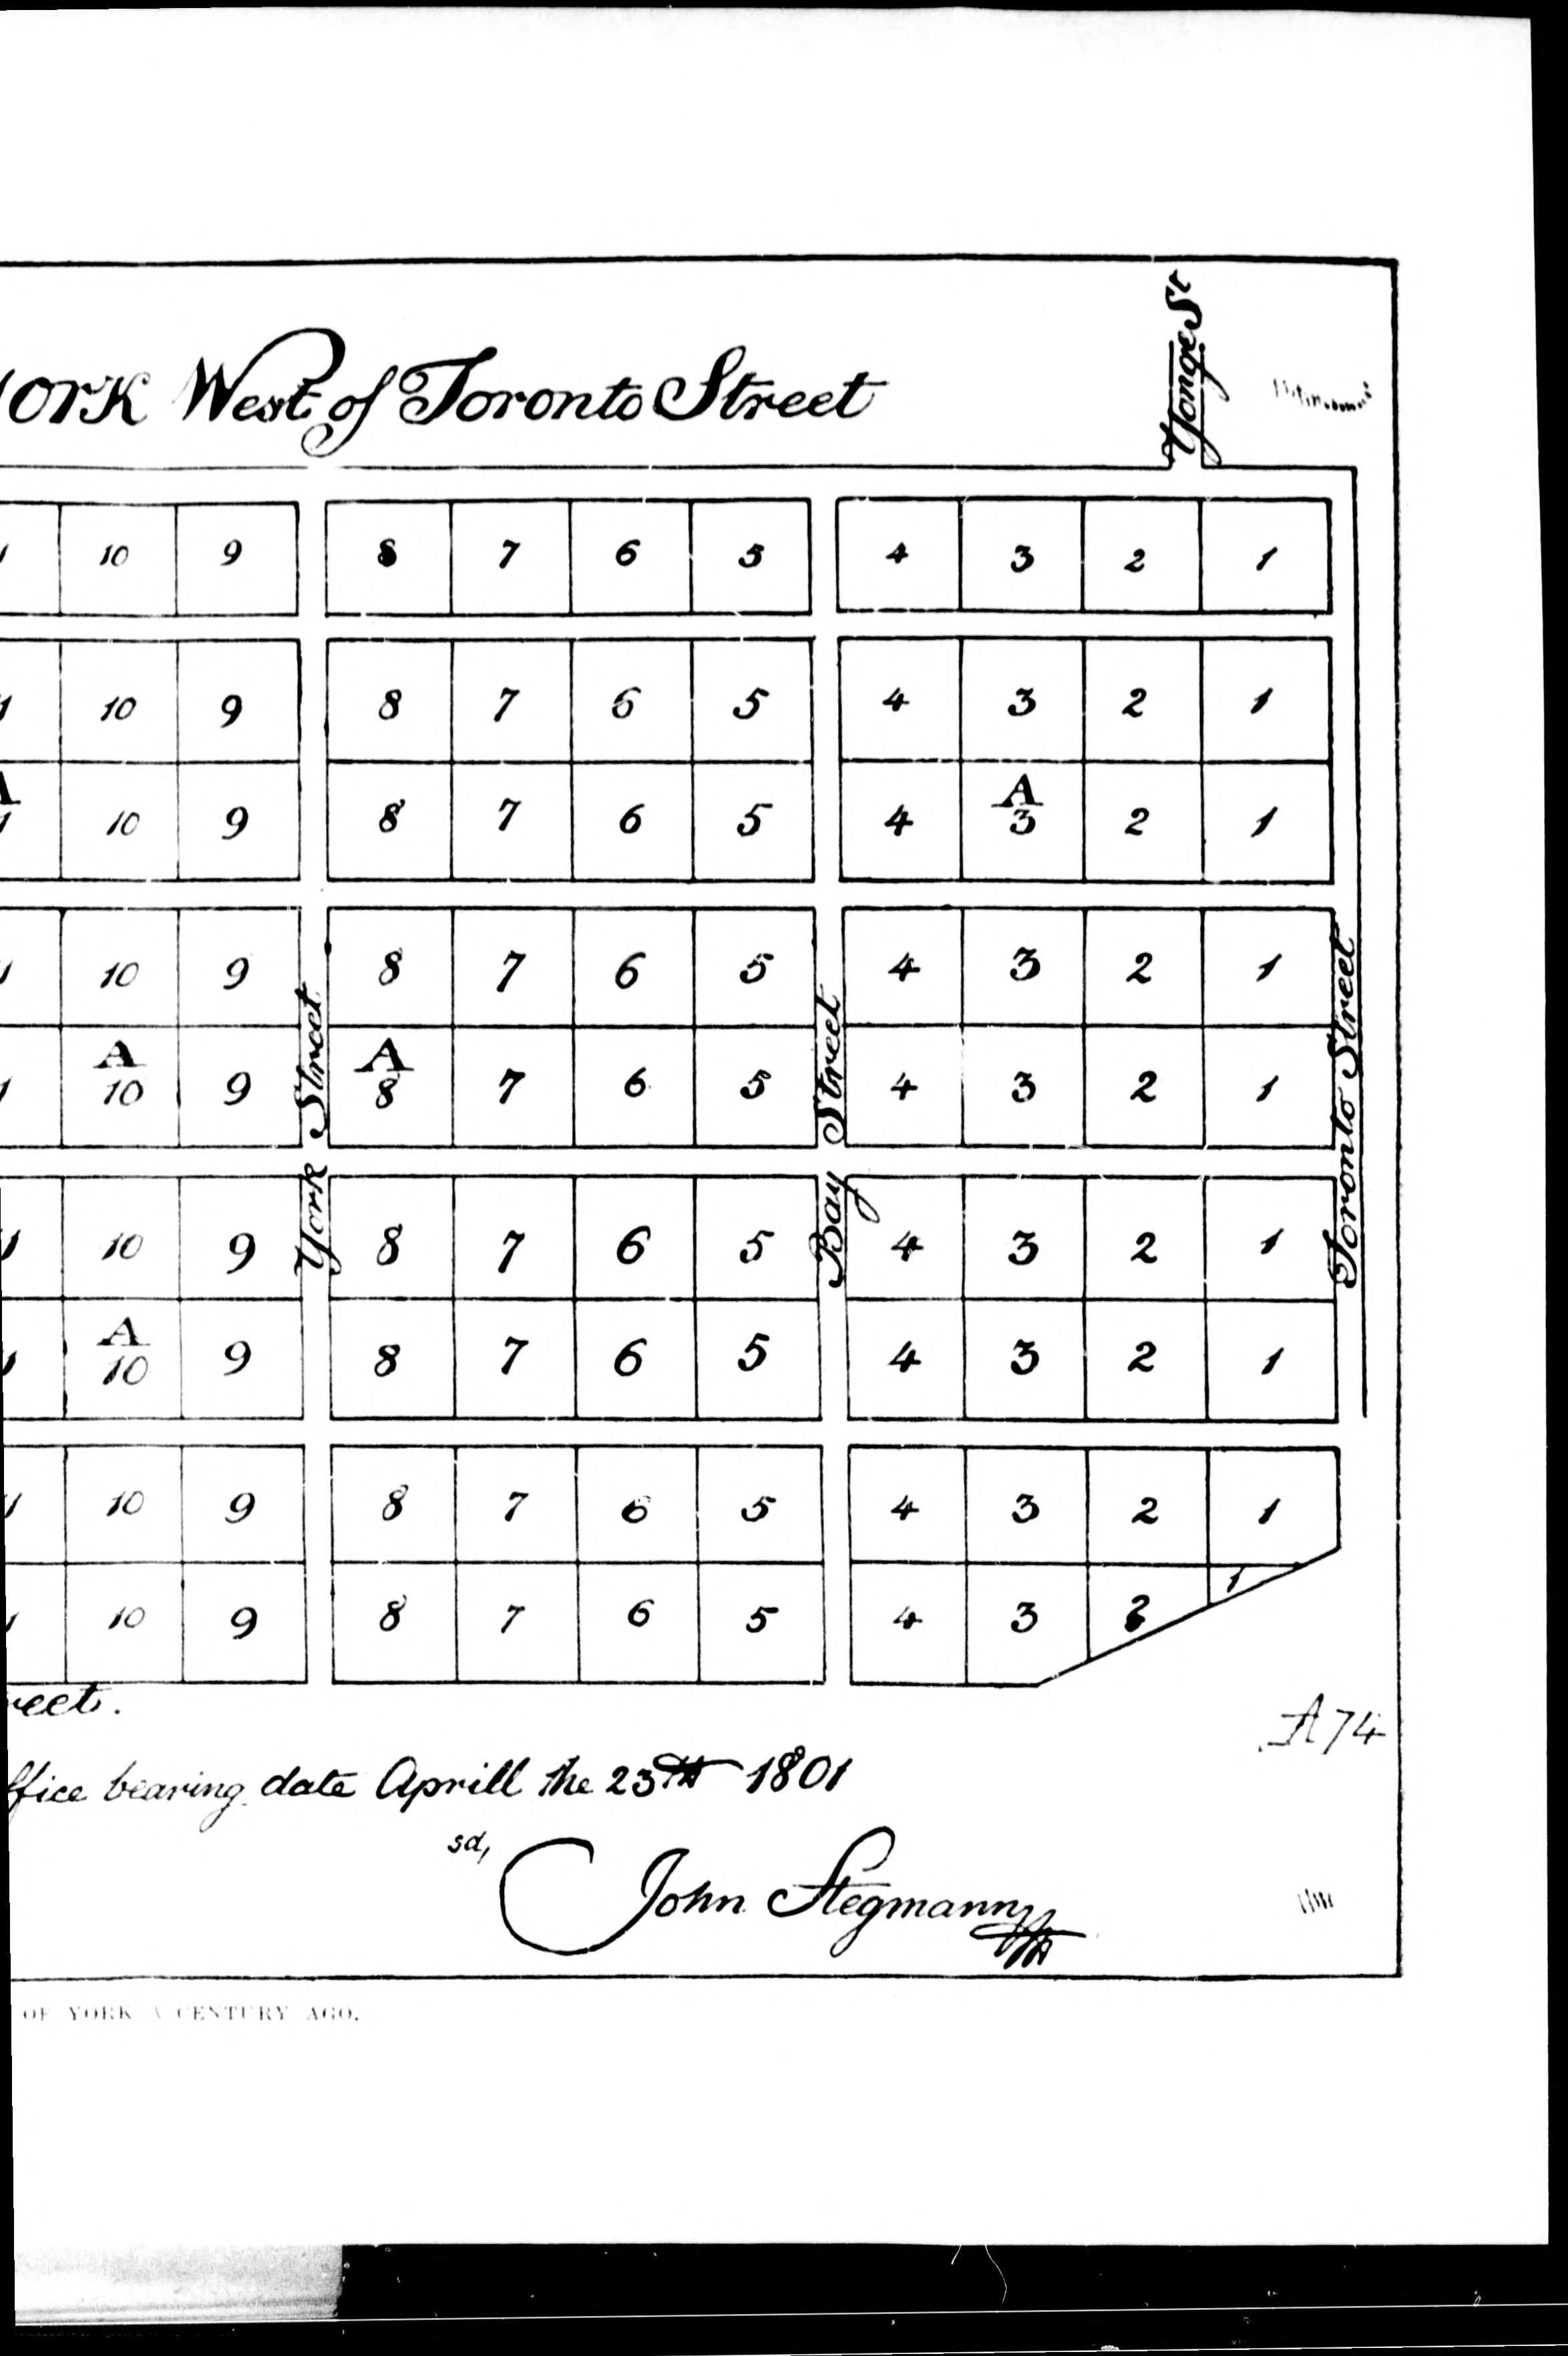 York West of Toronto Street
Yonge St
10 9 8 7 6 5 4 3 2 1
10 9 8 7 6 5 4 3 2 1
10 9 8 7 6 5 4 A 3 2 1
10 9 8 7 6 5 4 3 2 1
A 10 9 A 8 7 6 5 4 3 2 1
10 9 8 7 6 5 4 3 2 1
A 10 9 8 7 6 5 4 3 2 1
10 9 8 7 6 5 4 3 2 1
10 9 8 7 6 5 4 3 2 1
York Street
Bay Street
Toronto Street
reet.
A 74
ffice bearing date Aprill the 23th 1801
sd, John Stegmann
OF YORK A CENTURY AGO.